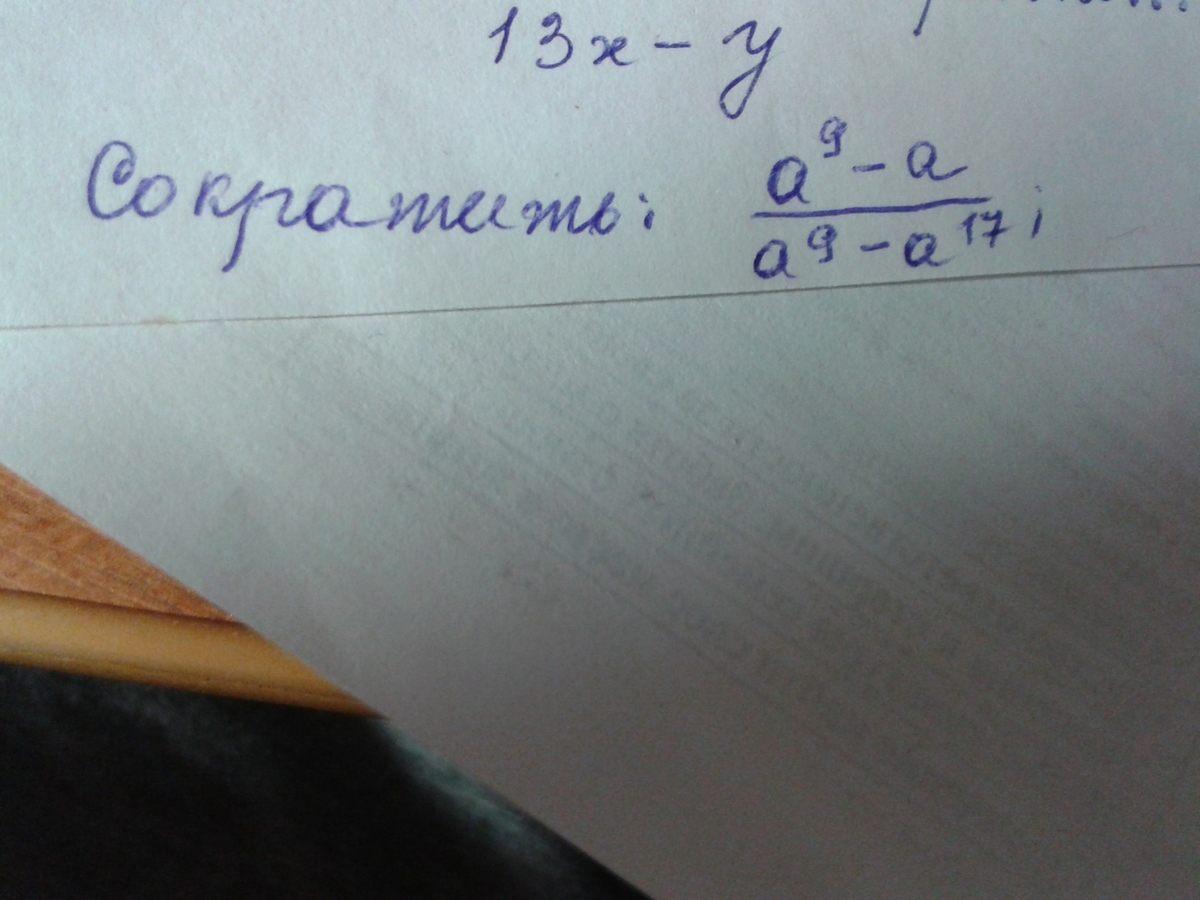 13x - y
Сократить: (a⁹ - a)/(a⁹ - a¹⁷);